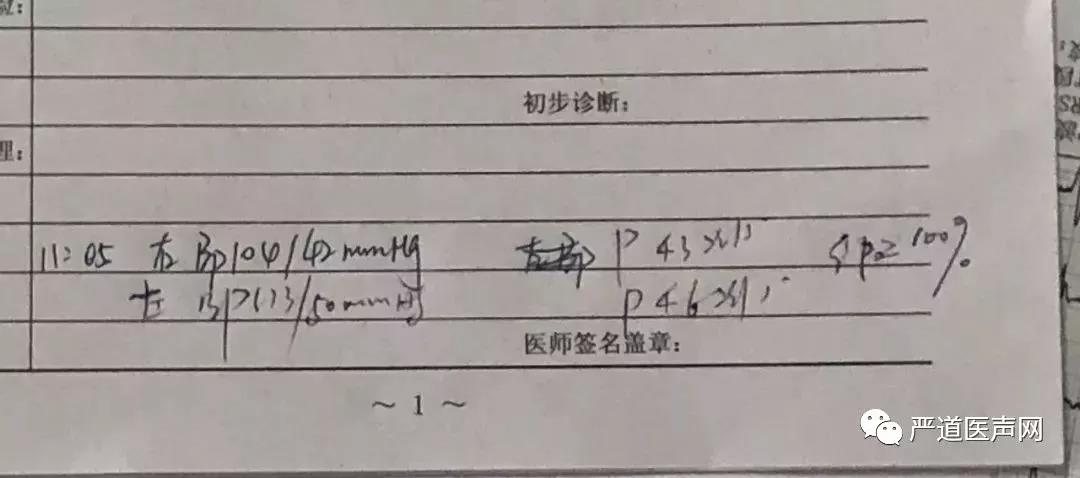 初步诊断:
理:
11:05 右 Bp 104/42mmHg P 43次/分 SpO2 100%
左 Bp 113/50mmHg P 46次/分
医师签名盖章:
~ 1 ~
严道医声网